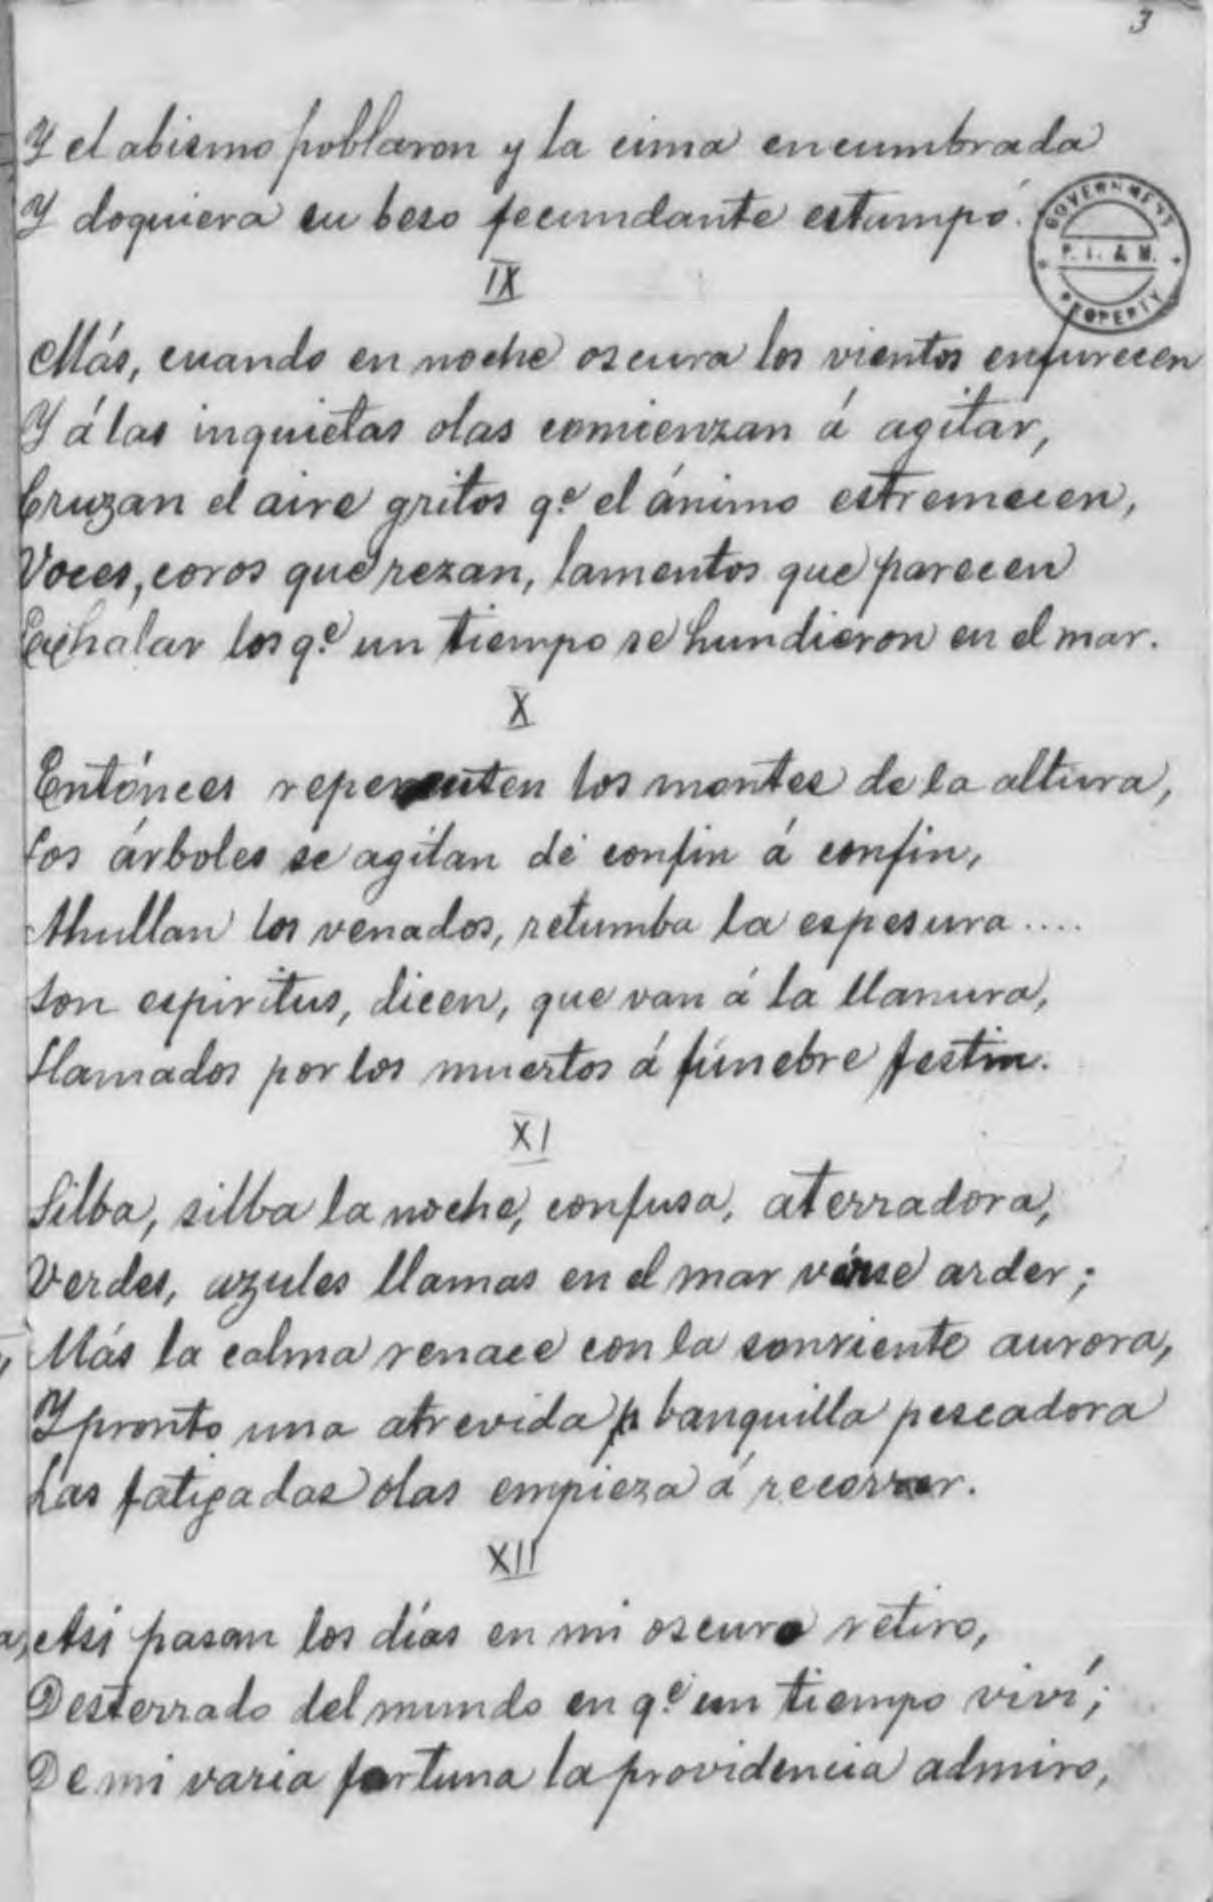 3
Y el abismo poblaron y la cima encumbrada
Y doquiera su beso fecundante estampó.
GOVERNMENT
P. L. & M.
PROPERTY
IX
Más, cuando en noche oscura los vientos enfurecen
Y á las inquietas olas comienzan á agitar,
Cruzan el aire gritos q.e el ánimo estremecen,
Voces, coros que rezan, lamentos que parecen
Exhalar los q.e un tiempo se hundieron en el mar.
X
Entónces repercuten los montes de la altura,
Los árboles se agitan de confin á confin,
Ahullan los venados, retumba la espesura....
Son espiritus, dicen, que van á la llanura,
Llamados por los muertos á fúnebre festin.
XI
Silba, silba la noche, confusa, aterradora,
Verdes, azules llamas en el mar vénse arder;
Más la calma renace con la sonriente aurora,
Y pronto una atrevida banquilla pescadora
Las fatigadas olas empieza á recorrer.
XII
Asi pasan los dias en mi oscuro retiro,
Desterrado del mundo en q.e un tiempo viví;
De mi varia fortuna la providencia admiro,